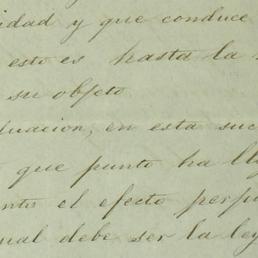 idad y que conduce
esto es hasta la
su objeto
duacion, en esta suc
que punto ha lle
ento el efecto perpe
ual debe ser la ley